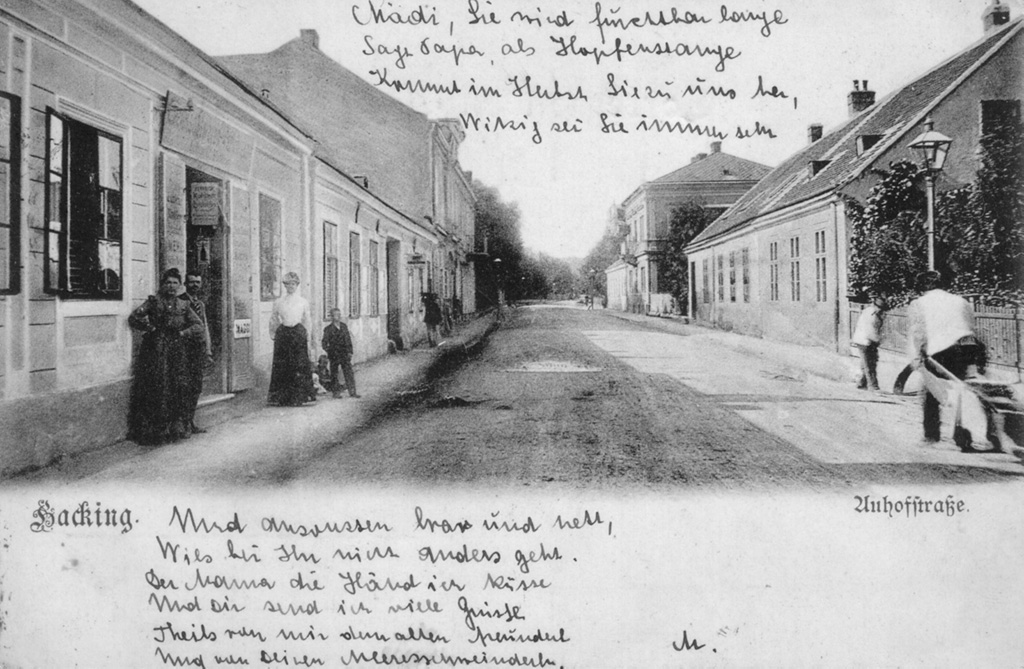 Mädi, Sie wird furchtbar lange
Sagt Papa, als Hopfenstange
Kommt im Herbst Sie zu uns her,
Witzig sei Sie immer sehr
Hacking.
Auhofstraße.
Und ansonsten brav und nett,
Wies bei Ihr nicht anders geht.
Der Mama die Händ ich küsse
Und Dir send ich viele Grüsse
Theils von mir dem alten Freunderl
Und von Deinen Meeresschweinderln.
M.